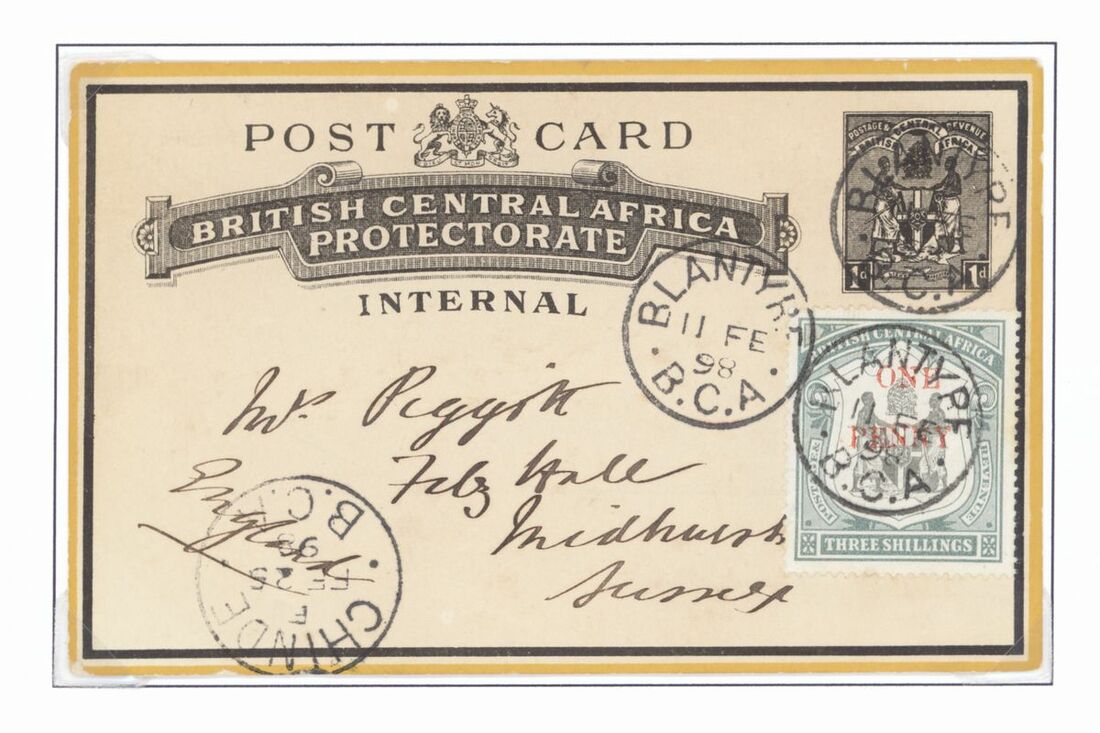 POST CARD
BRITISH CENTRAL AFRICA
PROTECTORATE
INTERNAL
POSTAGE & REVENUE
BRITISH CENTRAL AFRICA
1d 1d
BLANTYRE
B.C.A.
BLANTYRE
11 FE
98
B.C.A
BRITISH CENTRAL AFRICA
ONE
PENNY
POSTAGE & REVENUE
THREE SHILLINGS
BLANTYRE
11 FE
98
B.C.A
Mrs Piggott
Fitz Hall
Midhurst
Sussex
England
CHINDE
F
FE 25
98
B.C.A